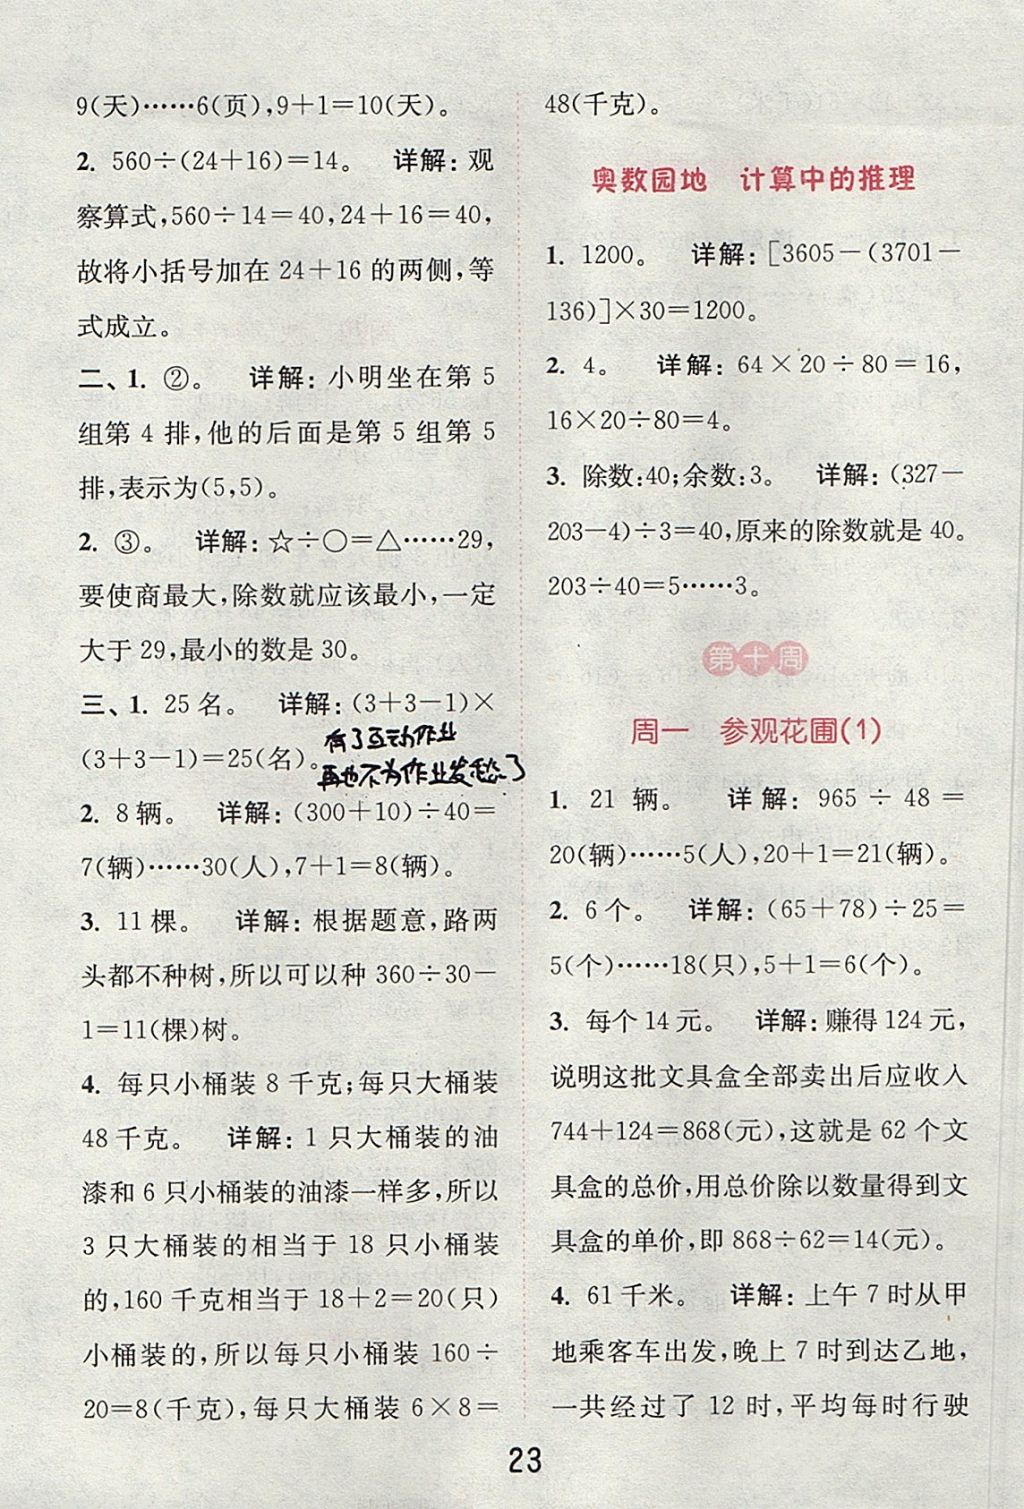 9(天)……6(页),9＋1＝10(天)。
2. 560÷(24＋16)＝14。　详解:观
察算式,560÷14＝40,24＋16＝40,
故将小括号加在 24＋16 的两侧,等
式成立。
二、1. ②。　详解:小明坐在第 5
组第 4 排,他的后面是第 5 组第 5
排,表示为(5,5)。
2. ③。　详解:☆÷○＝△……29,
要使商最大,除数就应该最小,一定
大于 29,最小的数是 30。
三、1. 25 名。　详解:(3＋3－1)×
(3＋3－1)＝25(名)。
有了互动作业
再也不为作业发愁了
2. 8 辆。　详解:(300＋10)÷40＝
7(辆)……30(人),7＋1＝8(辆)。
3. 11 棵。　详解:根据题意,路两
头都不种树,所以可以种 360÷30－
1＝11(棵)树。
4. 每只小桶装 8 千克;每只大桶装
48 千克。　详解:1 只大桶装的油
漆和 6 只小桶装的油漆一样多,所以
3 只大桶装的相当于 18 只小桶装
的,160 千克相当于 18＋2＝20(只)
小桶装的,所以每只小桶装 160÷
20＝8(千克),每只大桶装 6×8＝
48(千克)。
奥数园地　计算中的推理
1. 1200。　详解:[3605－(3701－
136)]×30＝1200。
2. 4。　详解:64×20÷80＝16,
16×20÷80＝4。
3. 除数:40;余数:3。　详解:(327－
203－4)÷3＝40,原来的除数就是 40。
203÷40＝5……3。
第十周
周一　参观花圃(1)
1. 21 辆。　详解:965÷48＝
20(辆)……5(人),20＋1＝21(辆)。
2. 6 个。　详解:(65＋78)÷25＝
5(个)……18(只),5＋1＝6(个)。
3. 每个 14 元。　详解:赚得 124 元,
说明这批文具盒全部卖出后应收入
744＋124＝868(元),这就是 62 个文
具盒的总价,用总价除以数量得到文
具盒的单价,即 868÷62＝14(元)。
4. 61 千米。　详解:上午 7 时从甲
地乘客车出发,晚上 7 时到达乙地,
一共经过了 12 时,平均每时行驶
23